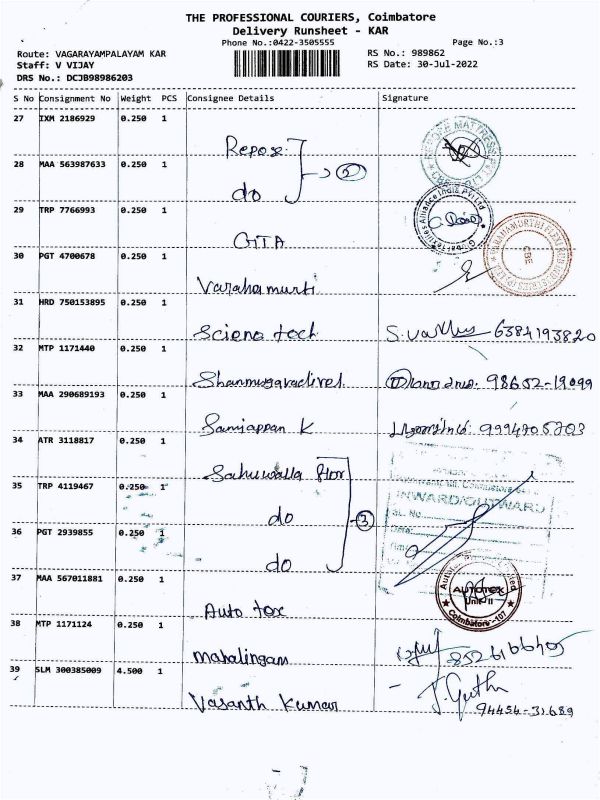 THE PROFESSIONAL COURIERS, Coimbatore
Delivery Runsheet - KAR
Phone No.:0422-3505555 Page No.:3
Route: VAGARAYAMPALAYAM KAR RS No.: 989862
Staff: V VIJAY RS Date: 30-Jul-2022
DRS No.: DCJB98986203
S No Consignment No Weight PCS Consignee Details Signature
27 IXM 2186929 0.250 1
Repose
28 MAA 563987633 0.250 1
do
29 TRP 7766993 0.250 1
GTA
30 PGT 4700678 0.250 1
Varahamurti
31 HRD 750153895 0.250 1
Scieno tech 6384193820
32 MTP 1171440 0.250 1
Shanmugavadivel 98652-19099
33 MAA 290689193 0.250 1
Samiappan K
34 ATR 3118817 0.250 1
35 TRP 4119467 0.250 1
do 3
36 PGT 2939855 0.250 1
do
INWARD/OUTWARD
37 MAA 567011881 0.250 1
Auto tex
AUTOTEX
Unit- II
Coimbatore -107
38 MTP 1171124 0.250 1
mahalingam
39 SLM 300385009 4.500 1
Vasanth Kumar 94454-31689